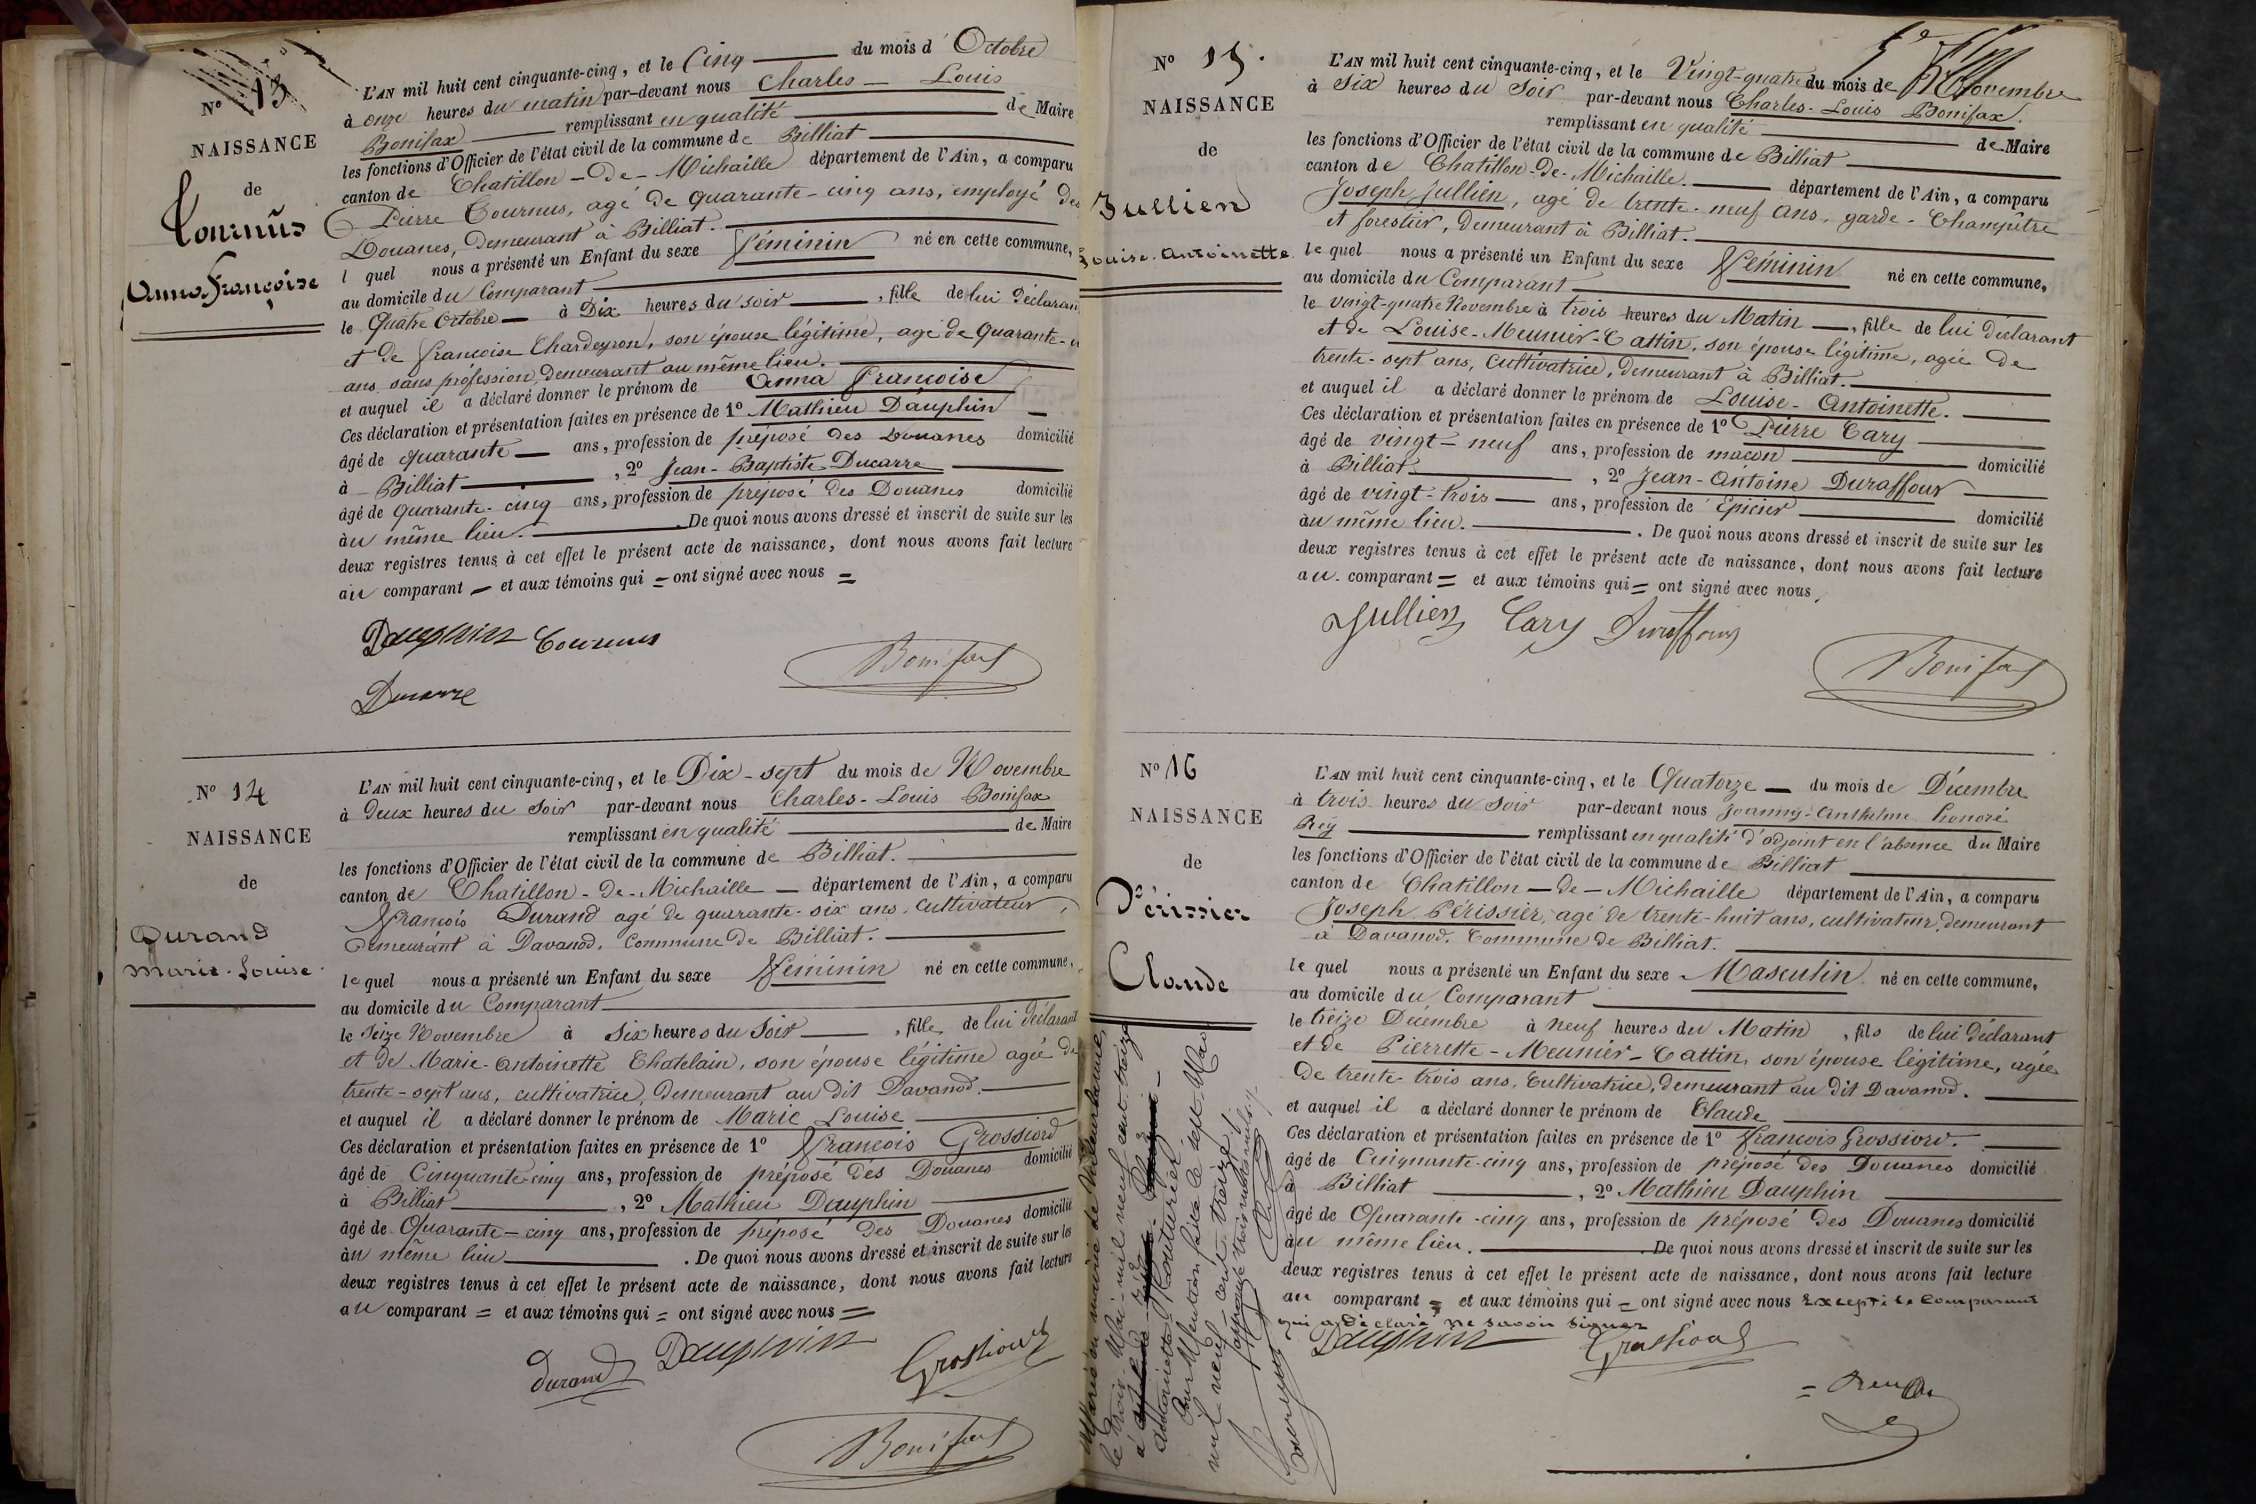 N° 13
NAISSANCE
de
Tournus
Anna Françoise
L'AN mil huit cent cinquante-cinq, et le Cinq du mois d'Octobre
à onze heures du matin par-devant nous Charles - Louis
Bonifax remplissant en qualité de Maire
les fonctions d'Officier de l'état civil de la commune de Billiat
canton de Chatillon - de - Michaille département de l'Ain, a comparu
Pierre Tournus, agé de quarante-cinq ans, employé des
Douanes, demeurant à Billiat.
l quel nous a présenté un Enfant du sexe Féminin né en cette commune,
au domicile du Comparant
le Quatre Octobre à Dix heures du soir, fille de lui déclarant
et de Françoise Chardeyron, son épouse légitime, agé de quarante
ans sans profession, demeurant au même lieu.
et auquel il a déclaré donner le prénom de Anna Françoise
Ces déclaration et présentation faites en présence de 1° Mathieu Dauphin
âgé de quarante ans, profession de préposé des Douanes domicilié
à Billiat, 2° Jean-Baptiste Ducarre
âgé de quarante-cinq ans, profession de préposé des Douanes domicilié
au même lieu. De quoi nous avons dressé et inscrit de suite sur les
deux registres tenus à cet effet le présent acte de naissance, dont nous avons fait lecture
au comparant et aux témoins qui = ont signé avec nous =
Dauphin Tournus
Bonifax
Ducarre
N° 14
NAISSANCE
de
Durand
Marie-Louise
L'AN mil huit cent cinquante-cinq, et le Dix-sept du mois de Novembre
à deux heures du soir par-devant nous Charles-Louis Bonifax
remplissant en qualité de Maire
les fonctions d'Officier de l'état civil de la commune de Billiat.
canton de Chatillon - de - Michaille département de l'Ain, a comparu
François Durand agé de quarante-six ans, cultivateur,
demeurant à Davanod, Commune de Billiat.
le quel nous a présenté un Enfant du sexe Féminin né en cette commune,
au domicile du Comparant
le seize Novembre à six heures du soir, fille de lui déclarant
et de Marie-Antoinette Chatelain, son épouse légitime agée de
trente-sept ans, cultivatrice, demeurant au dit Davanod.
et auquel il a déclaré donner le prénom de Marie Louise
Ces déclaration et présentation faites en présence de 1° François Grossiord
âgé de Cinquante-cinq ans, profession de préposé des Douanes domicilié
à Billiat, 2° Mathieu Dauphin
âgé de Quarante-cinq ans, profession de préposé des Douanes domicilié
au même lieu. De quoi nous avons dressé et inscrit de suite sur les
deux registres tenus à cet effet le présent acte de naissance, dont nous avons fait lecture
au comparant = et aux témoins qui = ont signé avec nous =
Durand Dauphin Grossiord
Bonifax
N° 15.
NAISSANCE
de
Jullien
Louise-Antoinette
L'AN mil huit cent cinquante-cinq, et le Vingt-quatre du mois de Novembre
à Six heures du Soir par-devant nous Charles-Louis Bonifax.
remplissant en qualité de Maire
les fonctions d'Officier de l'état civil de la commune de Billiat
canton de Chatillon-de-Michaille. département de l'Ain, a comparu
Joseph Jullien, agé de trente-neuf ans, garde-Champêtre
et forestier, demeurant à Billiat.
le quel nous a présenté un Enfant du sexe Féminin né en cette commune,
au domicile du Comparant
le vingt-quatre Novembre à trois heures du Matin, fille de lui déclarant
et de Louise-Meunier-Cattin, son épouse légitime, agée de
trente-sept ans, cultivatrice, demeurant à Billiat.
et auquel il a déclaré donner le prénom de Louise-Antoinette.
Ces déclaration et présentation faites en présence de 1° Pierre Cary
âgé de vingt-neuf ans, profession de maçon domicilié
à Billiat, 2° Jean-Antoine Duraffour
âgé de vingt-trois ans, profession de Epicier domicilié
au même lieu. De quoi nous avons dressé et inscrit de suite sur les
deux registres tenus à cet effet le présent acte de naissance, dont nous avons fait lecture
au comparant = et aux témoins qui = ont signé avec nous,
Jullien Cary Duraffour
Bonifax
N° 16
NAISSANCE
de
Périssier
Claude
L'AN mil huit cent cinquante-cinq, et le Quatorze du mois de Décembre
à trois heures du soir par-devant nous Joanny-Anthelme honoré
Rey remplissant en qualité d'adjoint en l'absence du Maire
les fonctions d'Officier de l'état civil de la commune de Billiat
canton de Chatillon - de - Michaille département de l'Ain, a comparu
Joseph Périssier, agé de trente-huit ans, cultivateur, demeurant
à Davanod, Commune de Billiat.
le quel nous a présenté un Enfant du sexe Masculin né en cette commune,
au domicile du Comparant
le treize Décembre à neuf heures du Matin, fils de lui déclarant
et de Pierrette-Meunier-Cattin, son épouse légitime, agée
de trente-trois ans, Cultivatrice, demeurant au dit Davanod.
et auquel il a déclaré donner le prénom de Claude
Ces déclaration et présentation faites en présence de 1° François Grossiord.
âgé de Cinquante-cinq ans, profession de préposé des Douanes domicilié
à Billiat, 2° Mathieu Dauphin
âgé de Quarante-cinq ans, profession de préposé des Douanes domicilié
au même lieu. De quoi nous avons dressé et inscrit de suite sur les
deux registres tenus à cet effet le présent acte de naissance, dont nous avons fait lecture
au comparant = et aux témoins qui = ont signé avec nous Excepté le Comparant
qui a déclaré ne savoir signer
Dauphin Grossiord
Marié en mairie de Villeurbanne
le trois Mai mil neuf cent treize
à
Antoinette
Pour Mention faite le sept Mai
mil neuf cent treize.